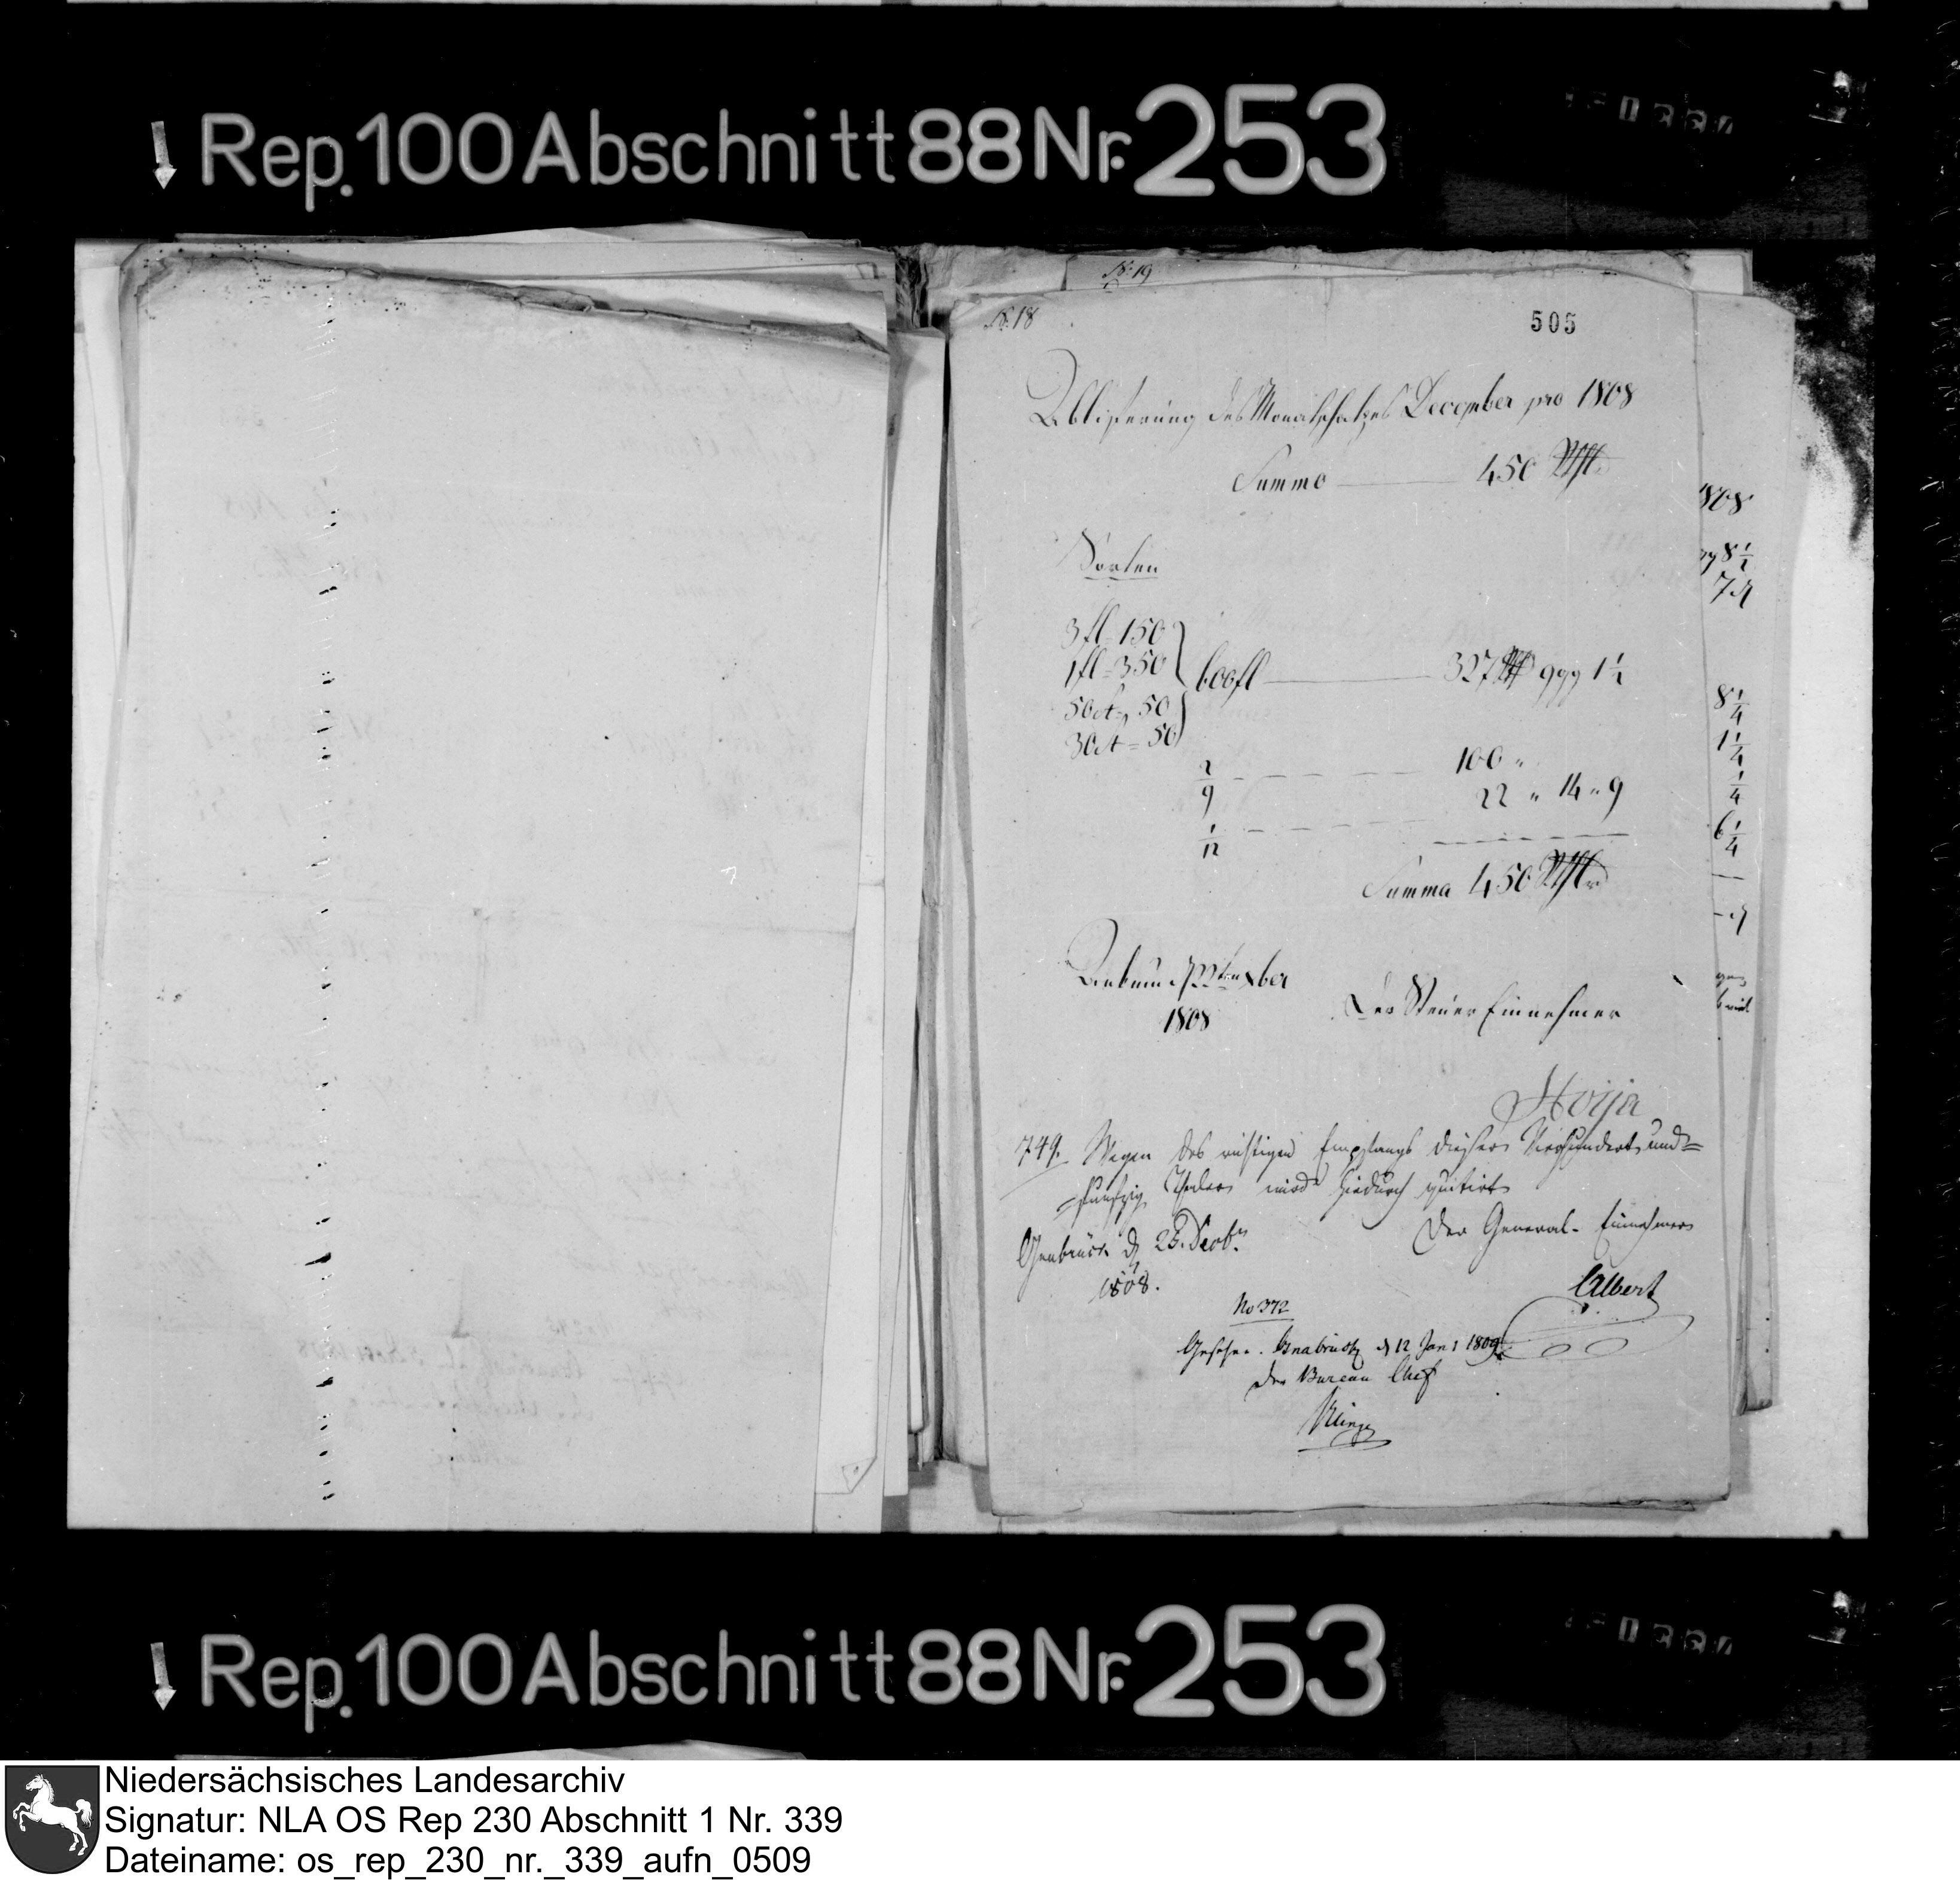 Rep. 100 Abschnitt 88 Nr. 253
N. 19
N. 18
505
Ablieferung des Monatschatzes December pro 1808
Summa 450 Rthlr
Sorten
3 fl = 150
1 fl = 350
600 fl 327 Rthlr 9 ggr 1 1/2
50 = 50
30 = 50
2/9 100 "
22 " 14 " 9
1/12
Summa 450 Rthlr
Ankum d 22ten Xber
1808
Der Steuer Einnehmer
Hoija
749. Wegen des richtigen Empfangs dieser Vierhundert und=
=funfzig Thaler wird hiedurch quitirt
Osnabrück d 23. Decbr
1808.
Der General-Einnehmer
Albert
No 372
Gesehen. Osnabrück d 12 Jan: 1809
Der Bureau Chef
Klinge
1808
8 1/2
7 d
8 1/4
1 1/4
1/4
6 1/4
Rep. 100 Abschnitt 88 Nr. 253
Niedersächsisches Landesarchiv
Signatur: NLA OS Rep 230 Abschnitt 1 Nr. 339
Dateiname: os_rep_230_nr._339_aufn_0509